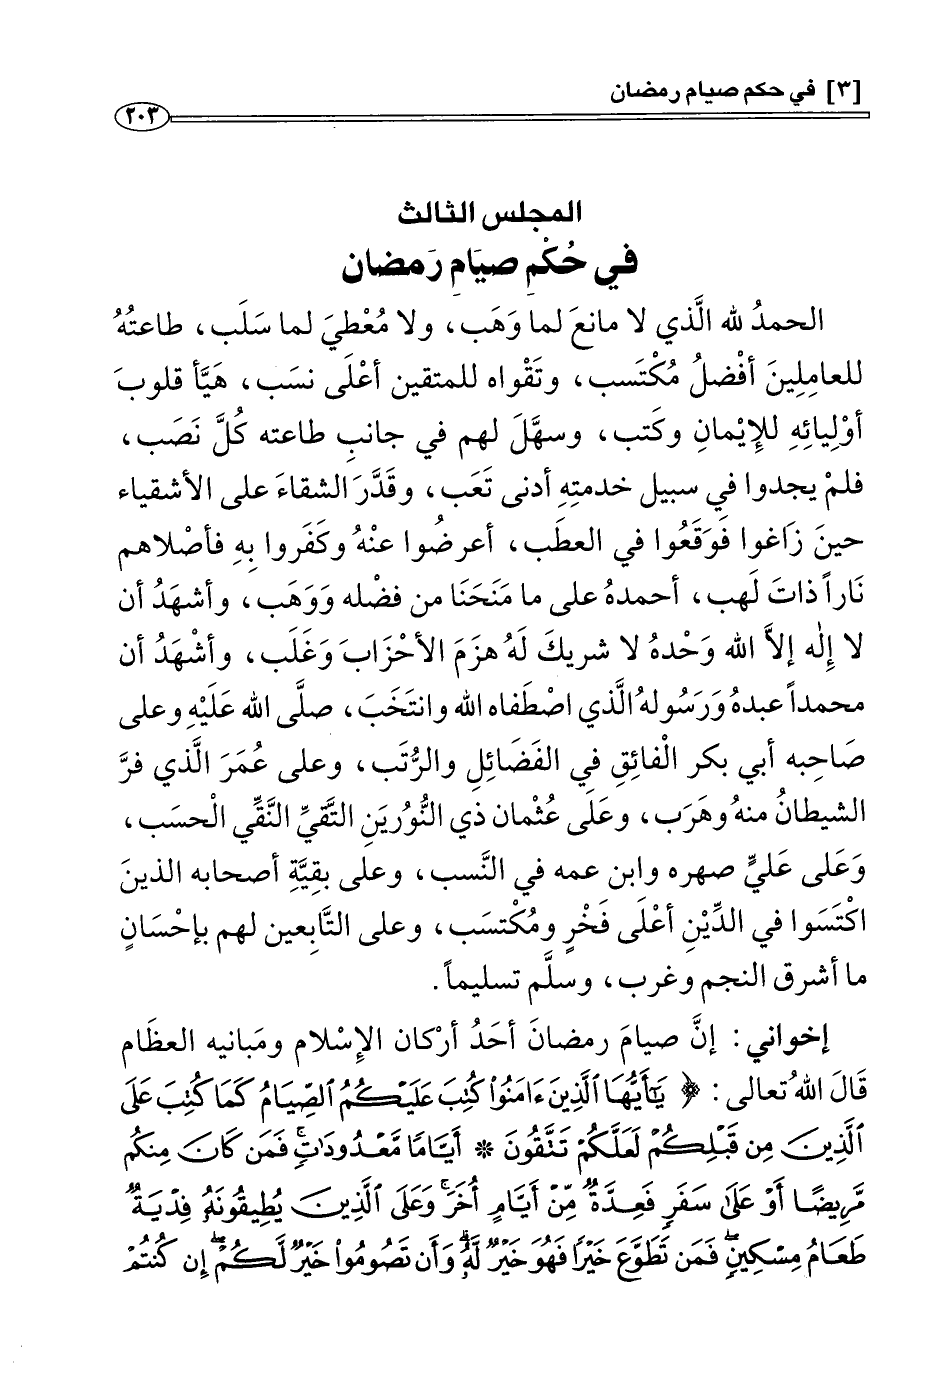 [٣] في حكم صيام رمضان
٢٠٣
المجلس الثالث
في حُكْمِ صيَامِ رَمضان
الحمدُ لله الَّذي لا مانعَ لما وَهَب، ولا مُعْطيَ لما سَلَب، طاعتُهُ
للعامِلِينَ أفْضلُ مُكْتَسب، وتَقْواه للمتقين أعْلَى نسَب، هَيَّأ قلوبَ
أوْلِيائِهِ للإِيْمانِ وكَتب، وسهَّلَ لهم في جانبِ طاعته كُلَّ نَصَب،
فلمْ يجدوا في سبيل خدمتِهِ أدنى تَعَب، وقَدَّرَ الشقاءَ على الأشقياء
حينَ زَاغوا فَوَقَعُوا في العطَب، أعرضُوا عنْهُ وكَفَروا بِهِ فأصْلاهم
نَاراً ذاتَ لَهب، أحمدهُ على ما مَنَحَنَا من فضْله وَوَهَب، وأشهَدُ أن
لا إِلٰه إلاَّ الله وَحْدهُ لا شريكَ لَهُ هزَمَ الأحْزابَ وَغَلَب، وأشْهَدُ أن
محمداً عبدهُ وَرَسُولهُ الَّذي اصْطَفاه الله وانتَخَبَ، صلَّى الله عَلَيْهِ وعلى
صَاحِبه أبي بكر الْفائِقِ في الفَضَائِلِ والرُّتَب، وعلى عُمَرَ الَّذي فرَّ
الشيطانُ منهُ وهَرَب، وعَلَى عثْمان ذي النُّورَينِ التَّقيِّ النَّقِّي الْحسَب،
وَعَلى عَليٍّ صهره وابن عمه في النَّسب، وعلى بقِيَّةِ أصحابه الذينَ
اكْتَسَوا في الدِّيْنِ أعْلَى فَخْرٍ ومُكْتسَب، وعلى التَّابِعين لهم بإحْسَانٍ
ما أشرق النجم وغرب، وسلَّم تسليماً.
إخواني: إنَّ صيامَ رمضانَ أحَدُ أرْكان الإِسْلام ومَبانيه العظَام
قَالَ اللهُ تعالى: ﴿يَٰٓأَيُّهَا ٱلَّذِينَ ءَامَنُوا۟ كُتِبَ عَلَيْكُمُ ٱلصِّيَامُ كَمَا كُتِبَ عَلَى
ٱلَّذِينَ مِن قَبْلِكُمْ لَعَلَّكُمْ تَتَّقُونَ * أَيَّامًا مَّعْدُودَٰتٍ ۚ فَمَن كَانَ مِنكُم
مَّرِيضًا أَوْ عَلَىٰ سَفَرٍ فَعِدَّةٌ مِّنْ أَيَّامٍ أُخَرَ ۚ وَعَلَى ٱلَّذِينَ يُطِيقُونَهُۥ فِدْيَةٌ
طَعَامُ مِسْكِينٍ ۖ فَمَن تَطَوَّعَ خَيْرًا فَهُوَ خَيْرٌ لَّهُۥ ۚ وَأَن تَصُومُوا۟ خَيْرٌ لَّكُمْ ۖ إِن كُنتُمْ